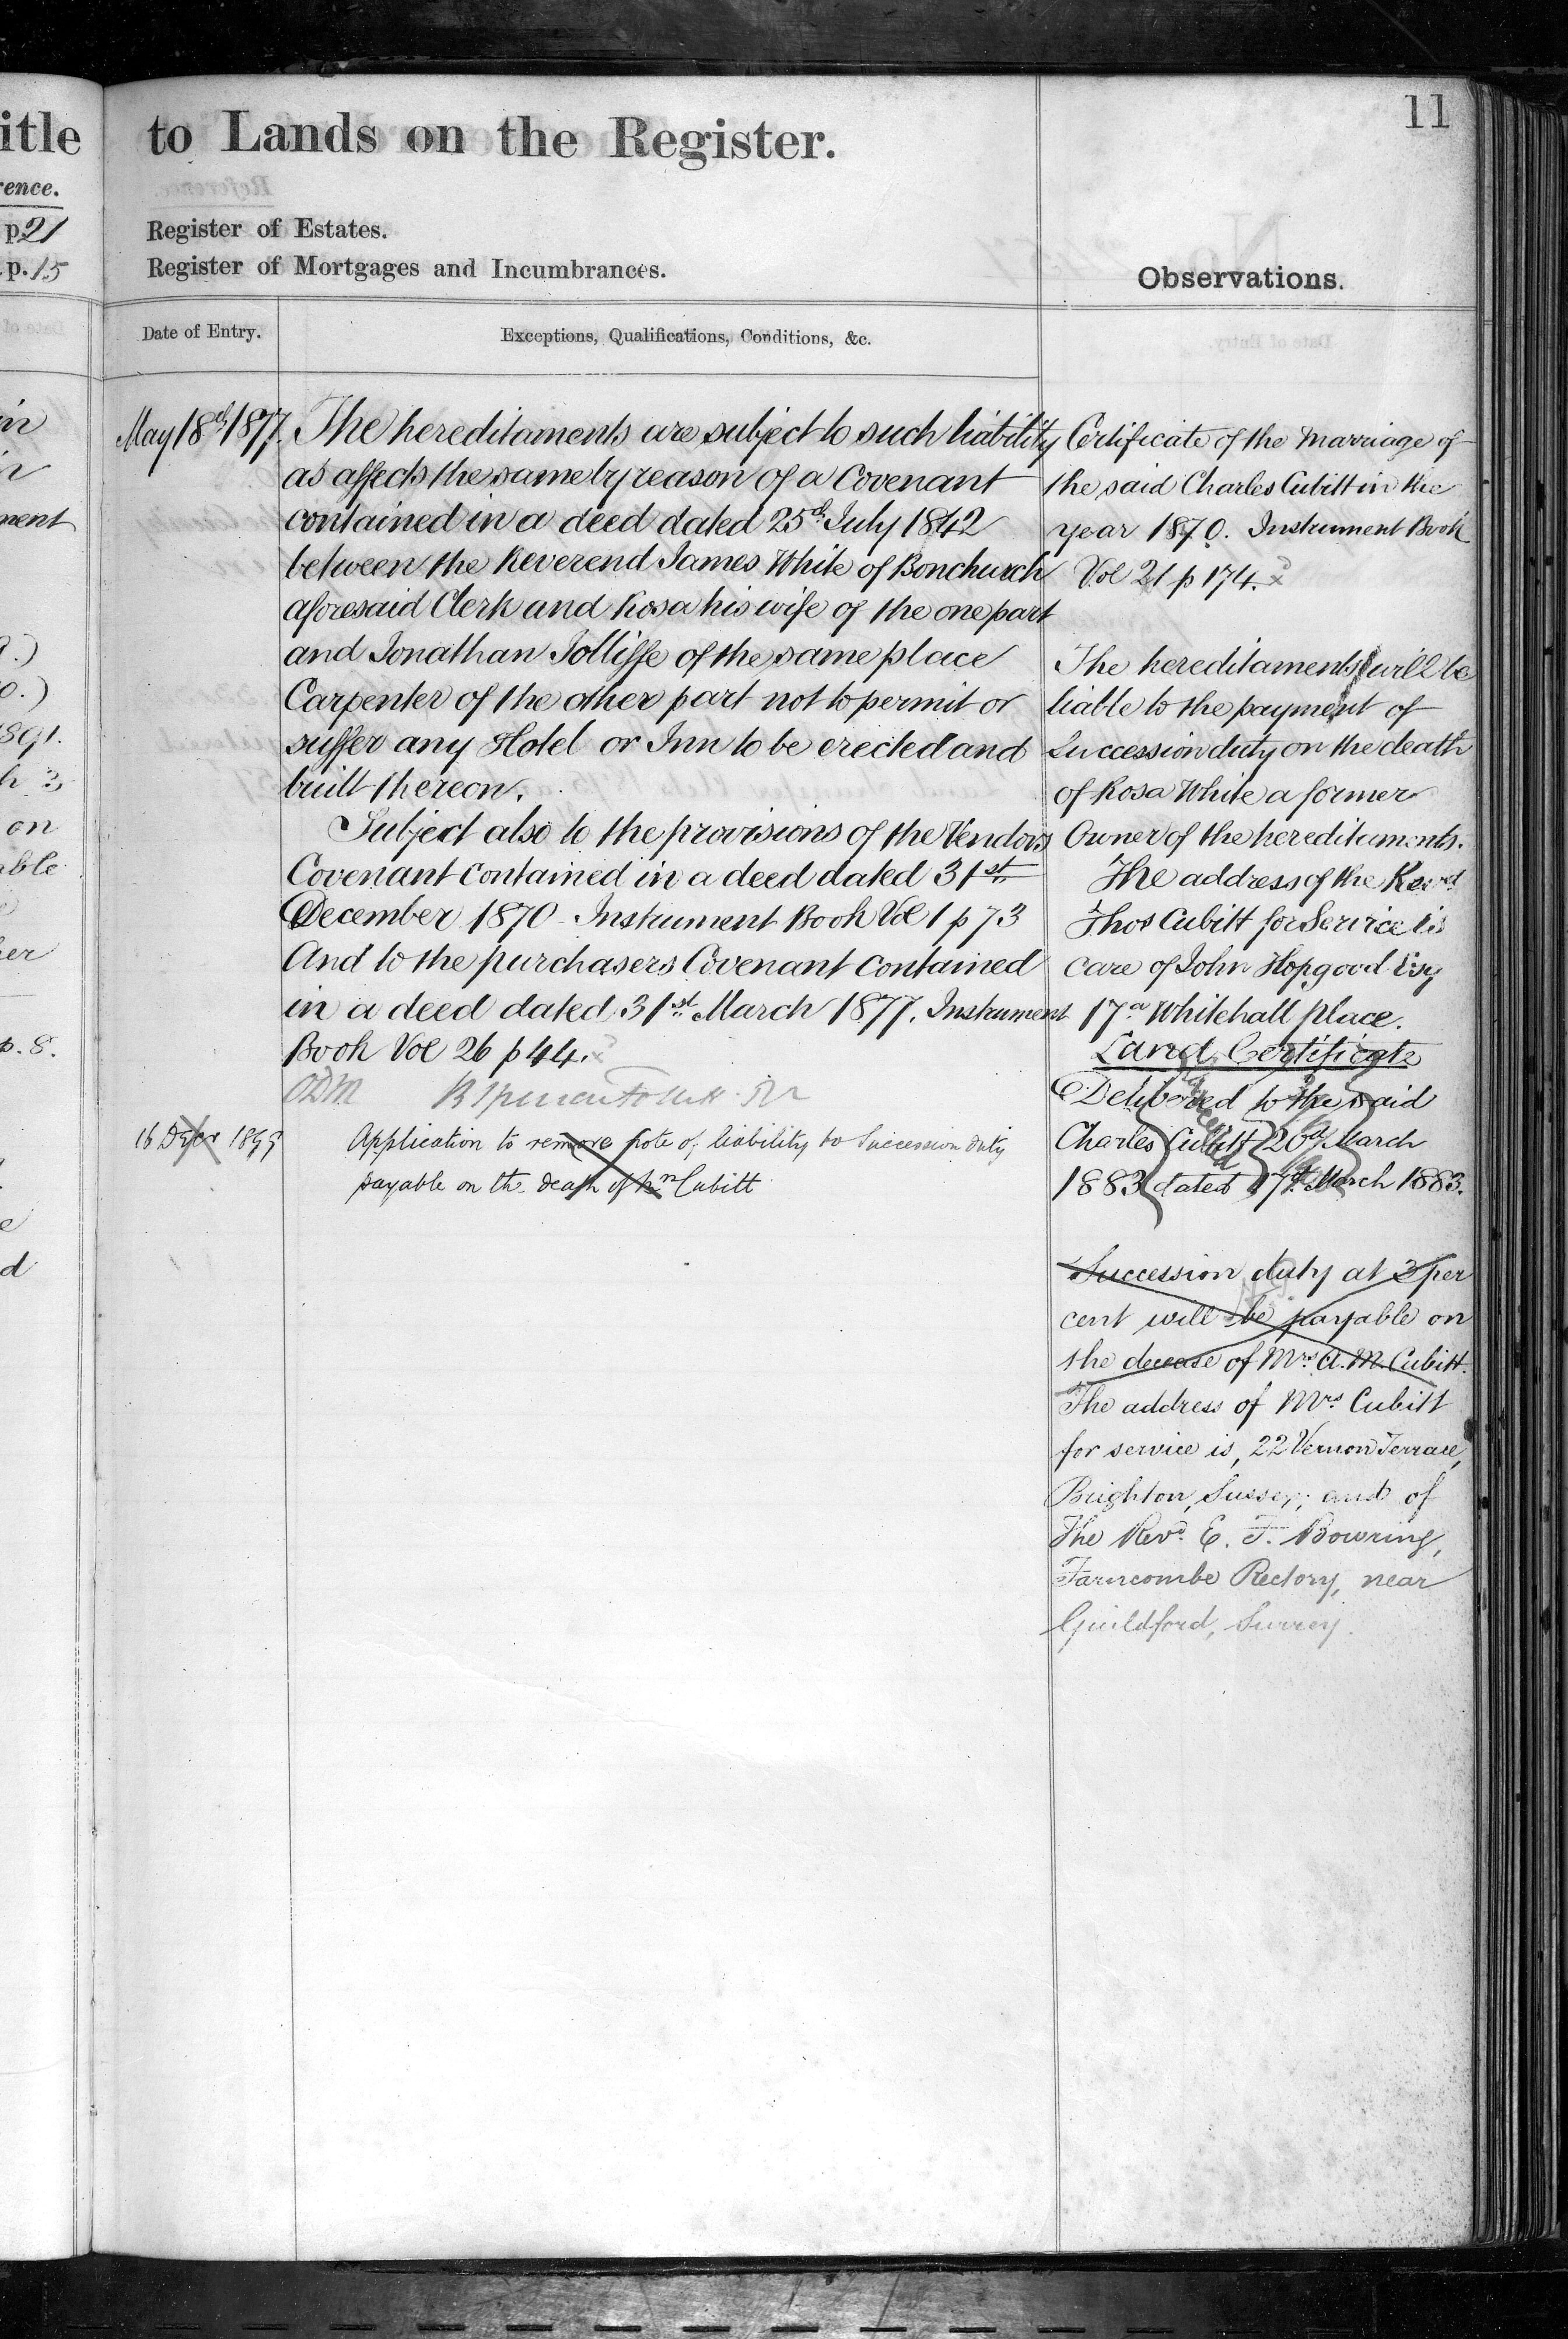 11
itle
to Lands on the Register.
rence.
p. 21
Register of Estates.
p. 15
Register of Mortgages and Incumbrances.
Observations.
Date of Entry.
Exceptions, Qualifications, Conditions, &c.
May 18th 1877.
The hereditaments are subject to such liability
as affects the same by reason of a Covenant
contained in a deed dated 25th July 1842
between the Reverend James White of Bonchurch
aforesaid Clerk and Rosa his wife of the one part
and Jonathan Jolliffe of the same place
Carpenter of the other part not to permit or
suffer any Hotel or Inn to be erected and
built thereon.
Subject also to the provisions of the Vendors
Covenant contained in a deed dated 31st
December 1870 - Instrument Book Vol 1 p 73
And to the purchasers Covenant contained
in a deed dated 31st March 1877. Instrument
Book Vol 26 p 44.
16 Decr 1899
Application to remove note of liability to Succession duty
payable on the death of Mrs Cubitt
Certificate of the Marriage of
the said Charles Cubitt in the
year 1870. Instrument Book
Vol 21 p 174.
The hereditaments will be
liable to the payment of
Succession duty on the death
of Rosa White a former
Owner of the hereditaments.
The address of the Revd
Thos Cubitt for Service is
care of John Hopgood Esq
17a Whitehall place.
Land Certificate
Delivered to the said
Charles Cubitt 20th March
1883 dated 17th March 1883.
Succession duty at 3 per
cent will be payable on
the decease of Mrs A. M. Cubitt.
The address of Mrs Cubitt
for service is, 22 Vernon Terrace,
Brighton, Sussex; and of
The Revd. E. F. Bowring,
Farncombe Rectory, near
Guildford, Surrey.